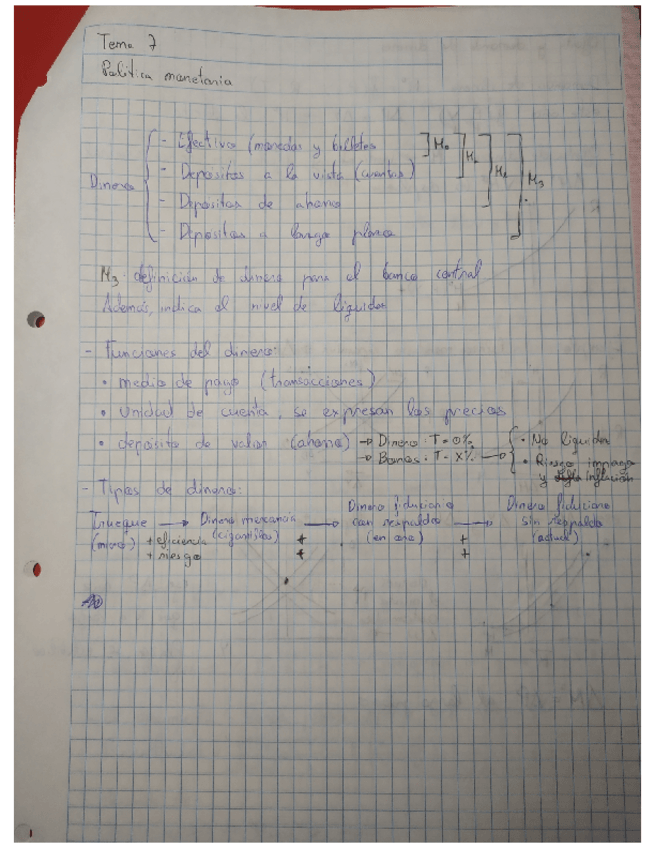 Tema 7
Política monetaria
Dinero
- Efectivo (monedas y billetes
- Depositos a la vista (cuentas)
- Depositos de ahorro
- Depositos a largo plazo
M₀
M₁
M₂
M₃
M₃: definición de dinero para el banco central
Además, indica el nivel de liquidez
- Funciones del dinero:
• medio de pago (transacciones)
• Unidad de cuenta, se expresan los precios
• deposito de valor (ahorro) → Dinero: T = 0%
→ Bonos: T = X% → • No liquidez
• Riesgo impago
y inflación
- Tipos de dinero:
Trueque → Dinero mercancía → Dinero fiduciario → Dinero fiduciario
(micro) (cigarrillos) con respaldo sin respaldo
(en oro) (actual)
+ eficiencia + +
+ riesgo + +